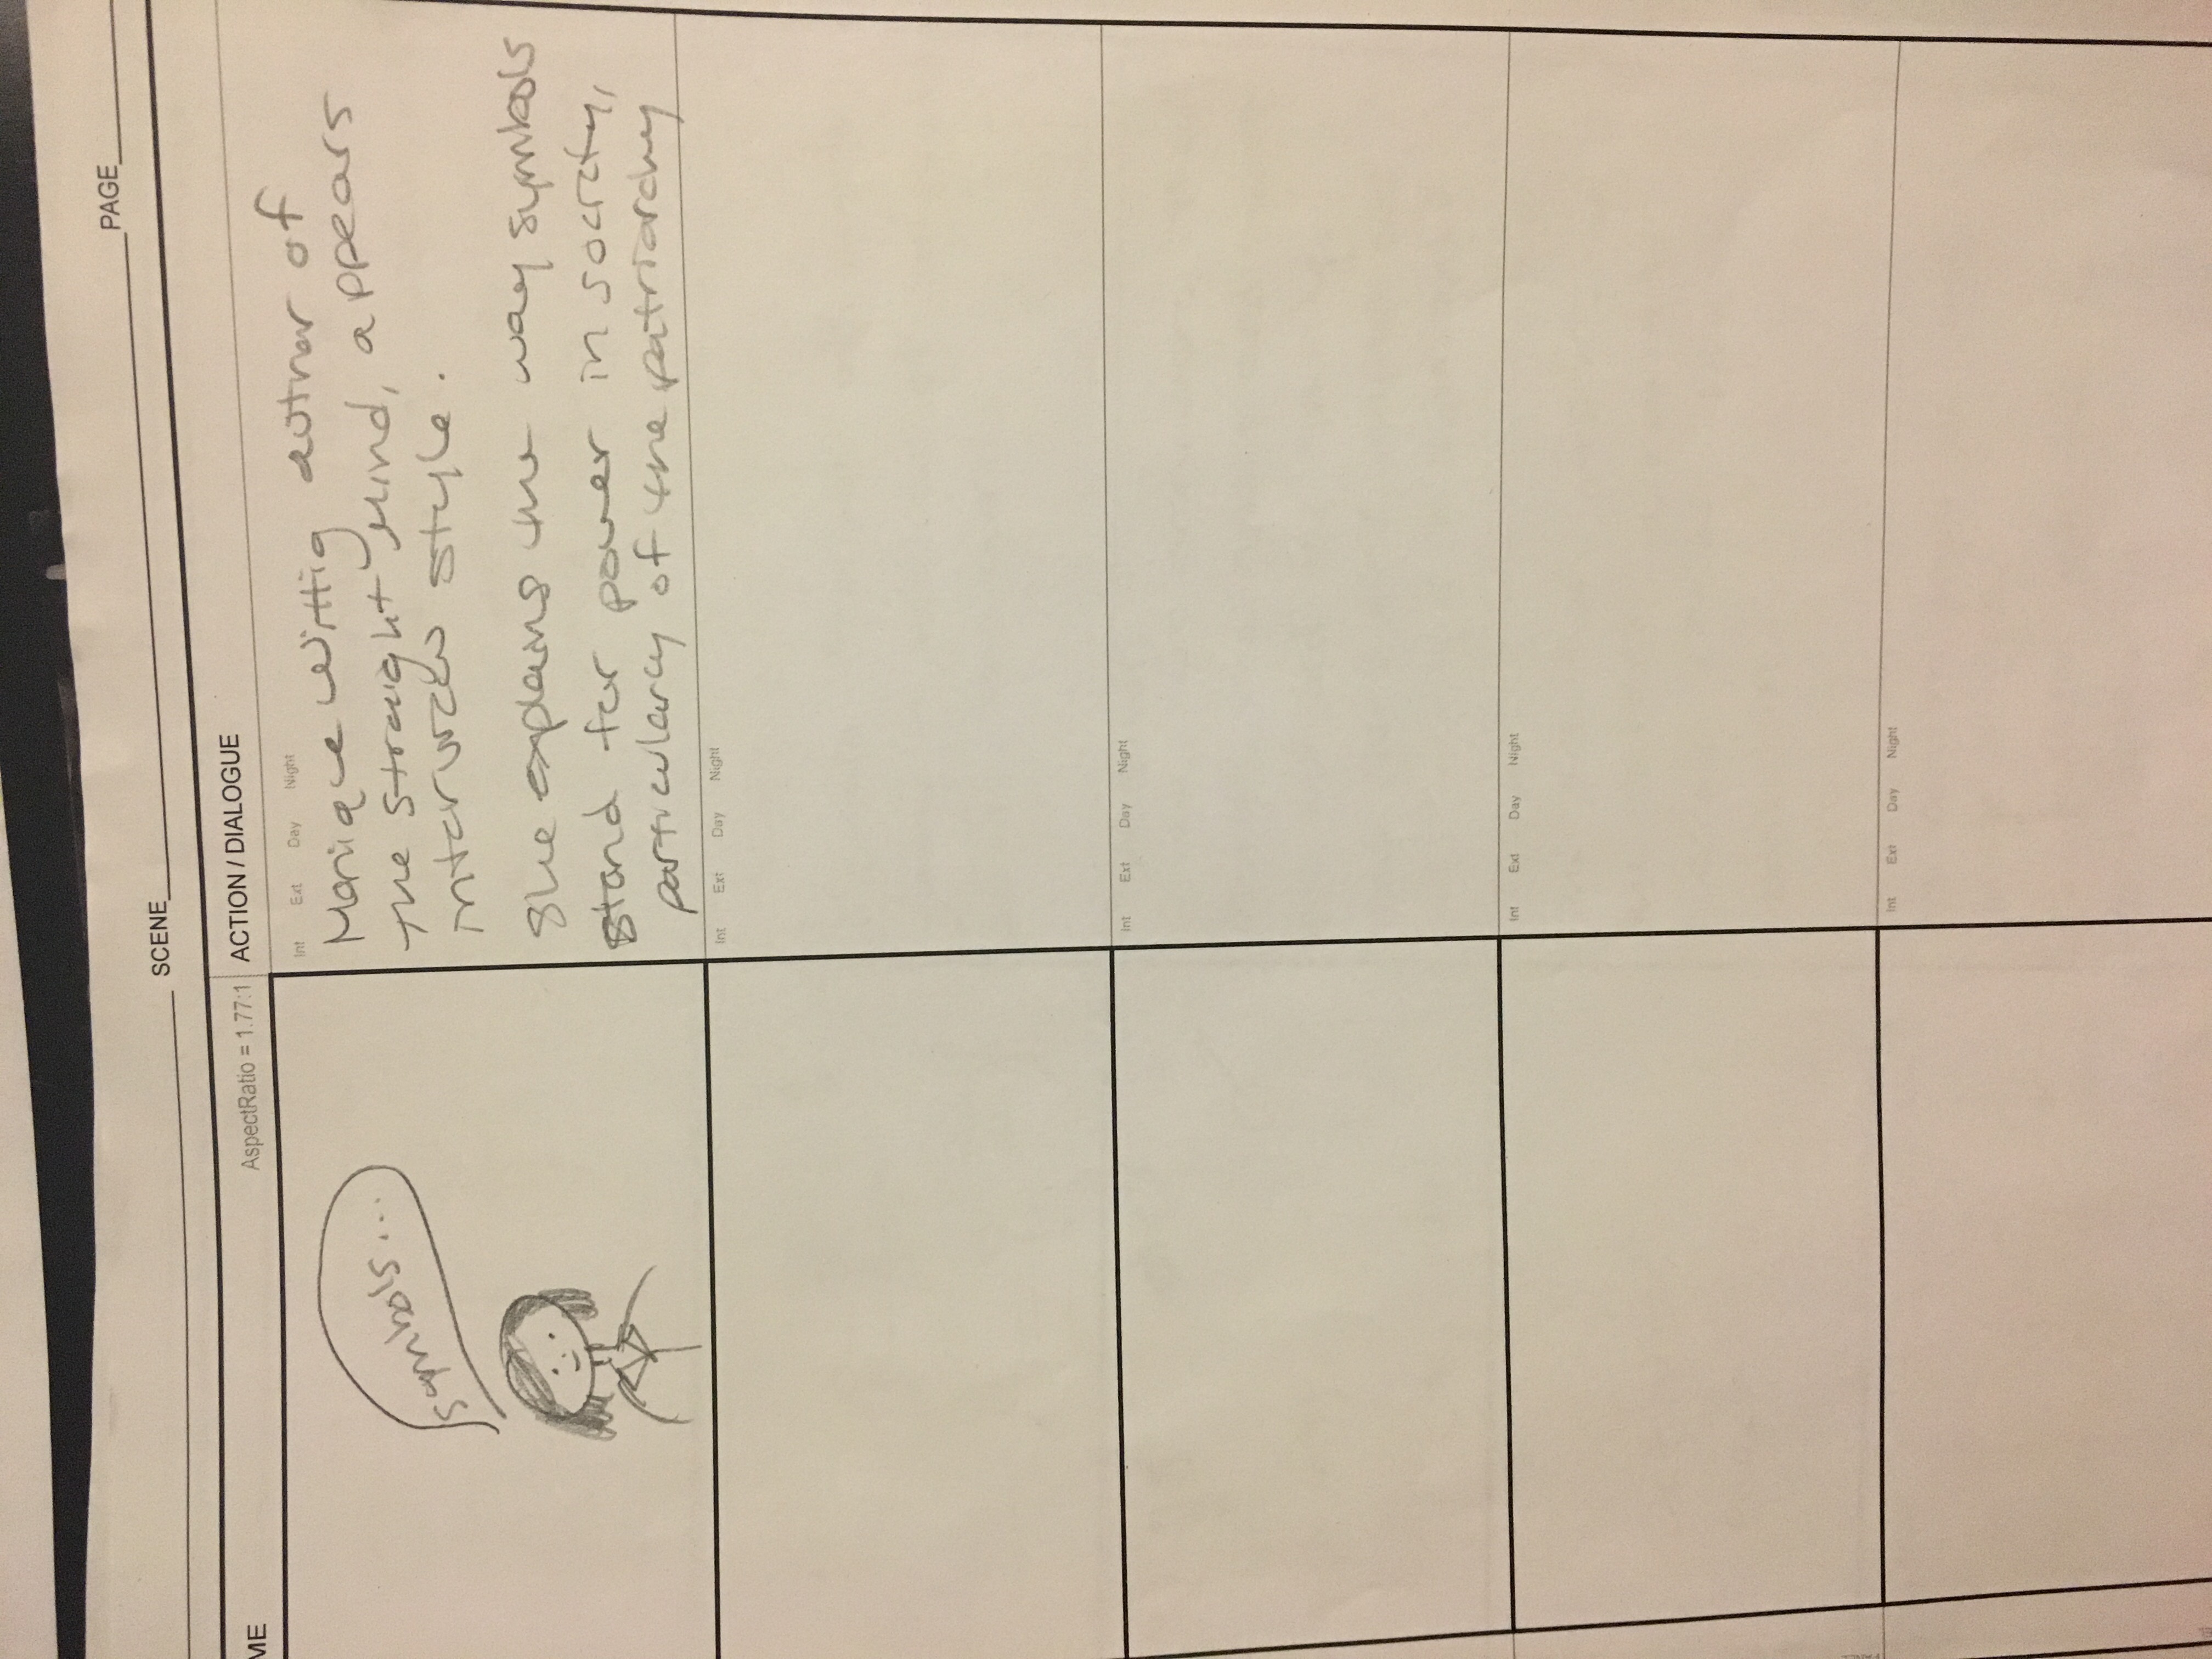 PAGE
SCENE
ME AspectRatio = 1.77:1 ACTION / DIALOGUE
Int Ext Day Night
symbols...
Monique Wittig author of
the Straight Mind, appears
interview style.
She explains the way symbols
stand for power in society,
particularly of the patriarchy
Int Ext Day Night
Int Ext Day Night
Int Ext Day Night
Int Ext Day Night